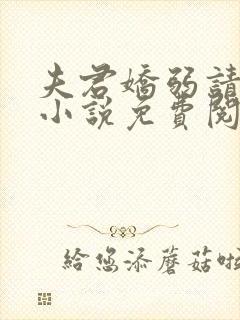 夫君嬌弱請
小說免費閱
給您添蘑菇啦